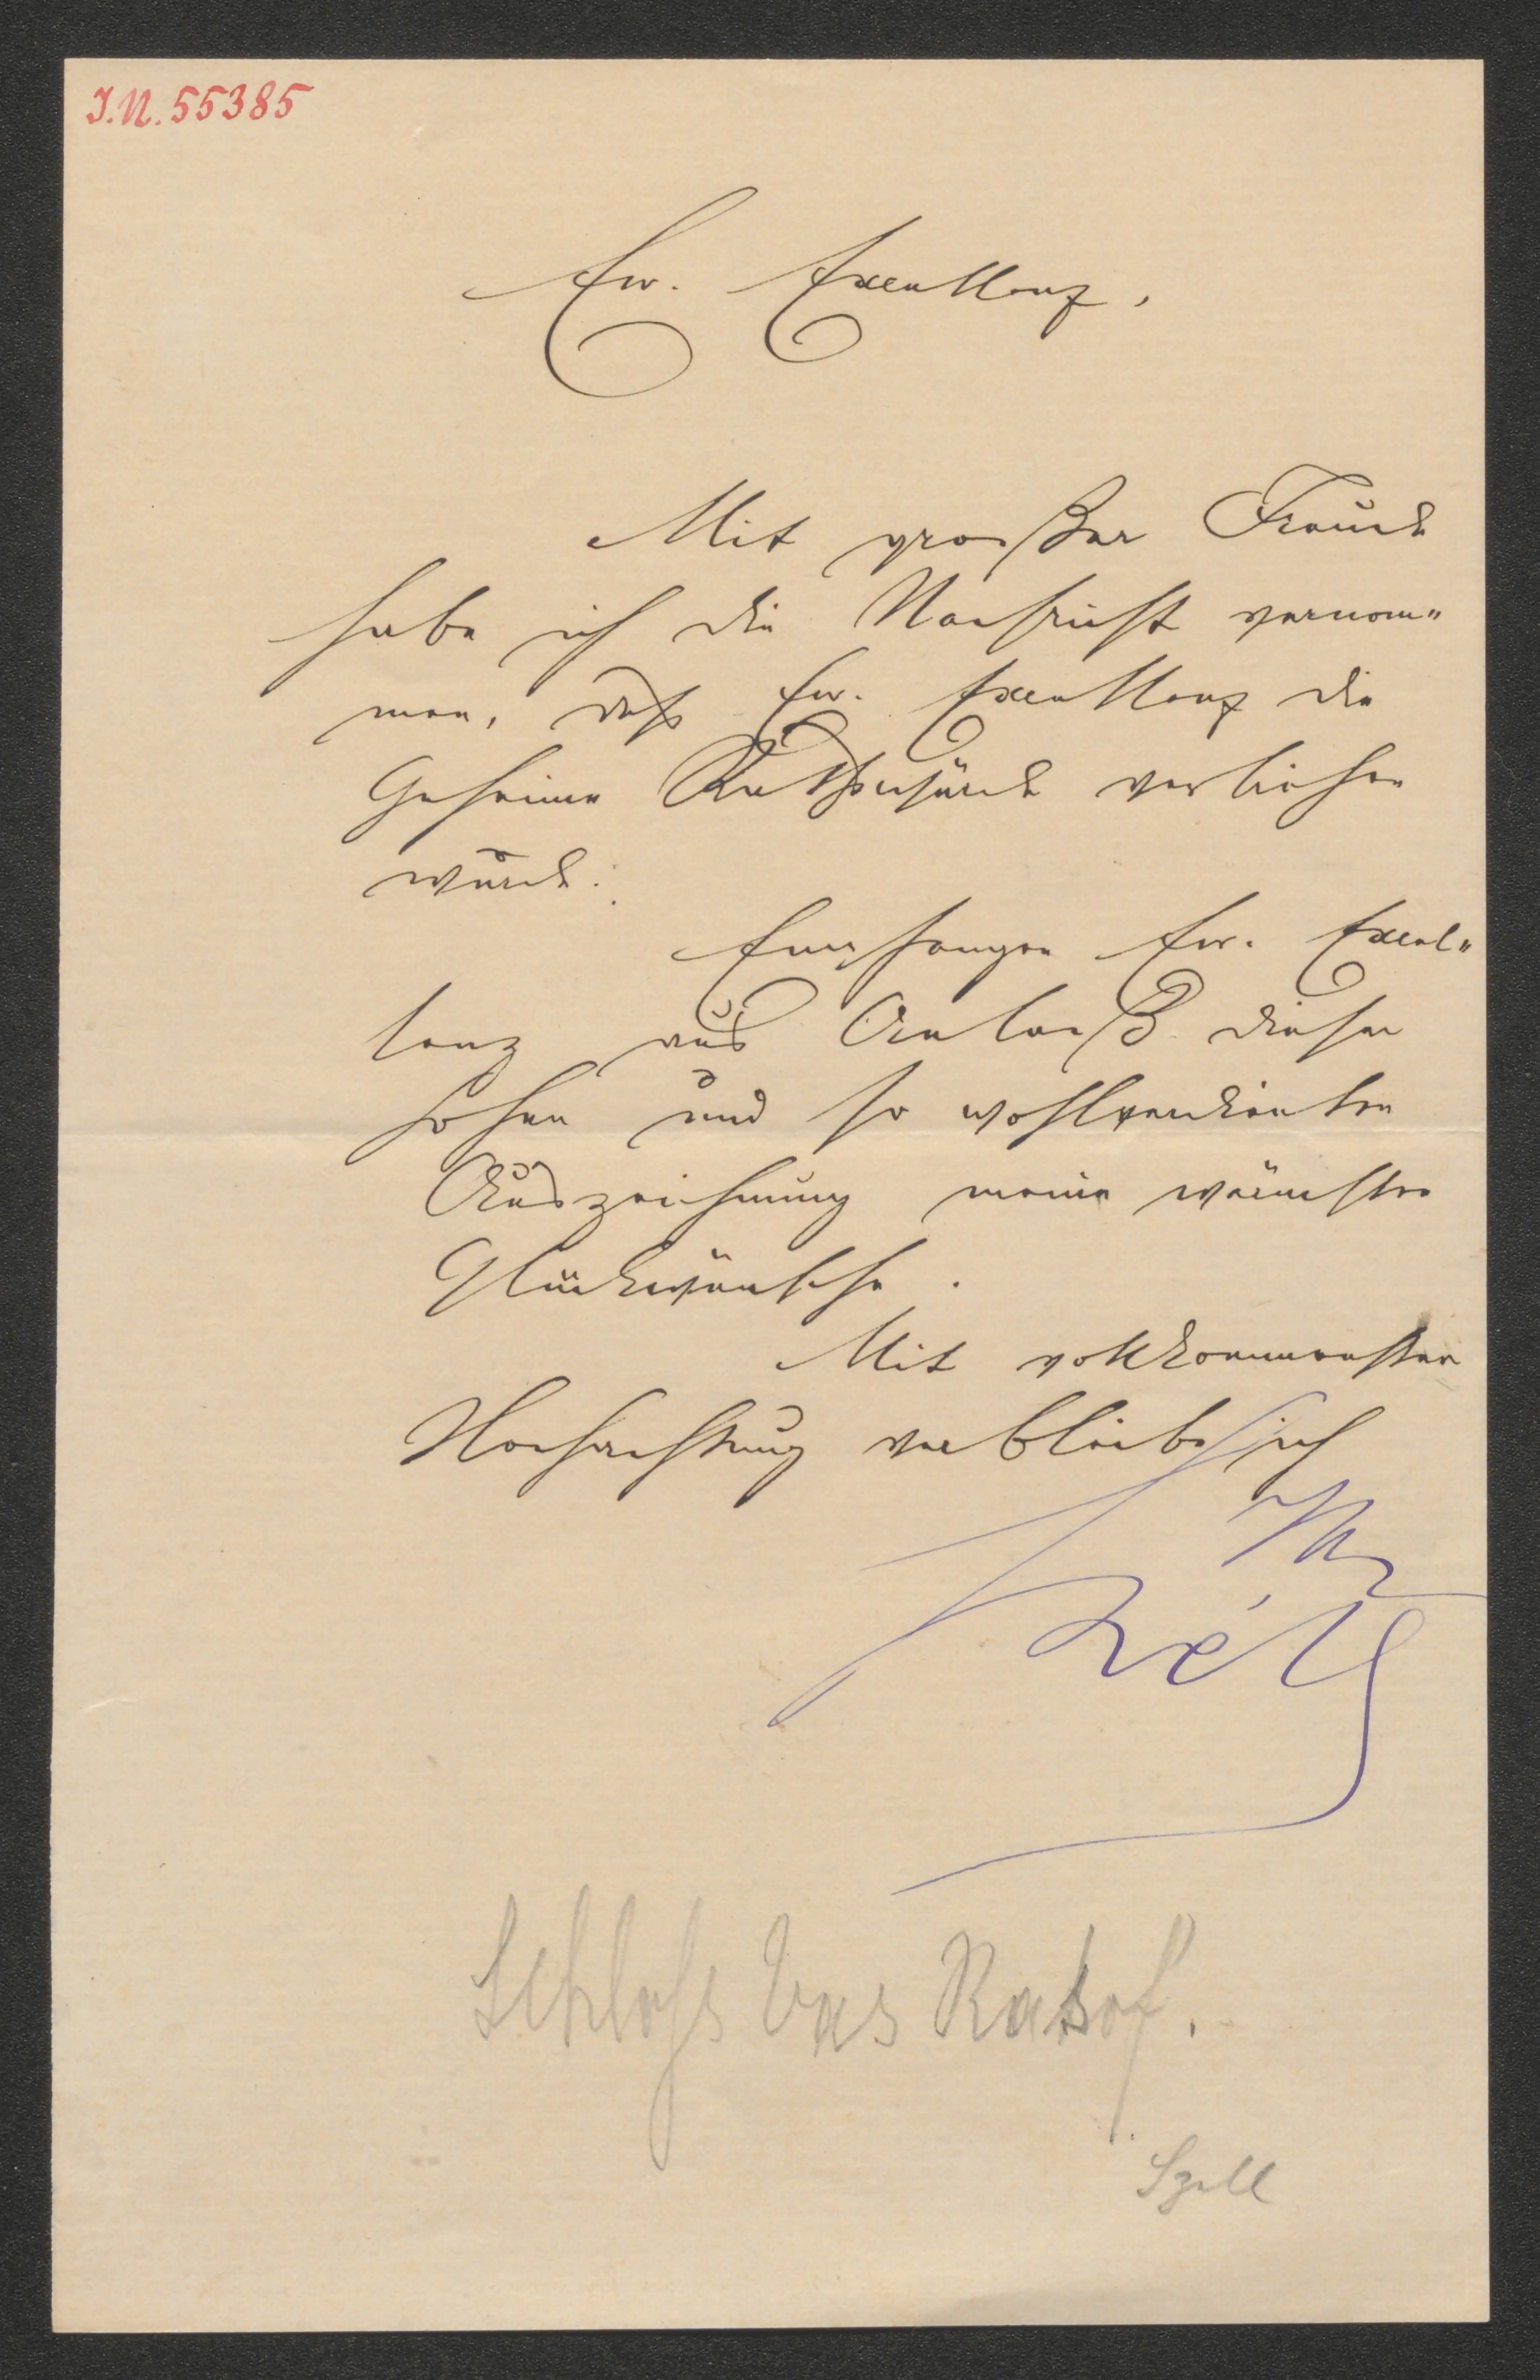 I.N. 55385
Ew. Excellenz,
Mit großer Freude
habe ich die Nachricht vernom„
men, daß Ew. Excellenz die
Geheime Rathswürde verliehen
wurde.
Empfangen Ew. Excel„
lenz aus Anlaß dieser
hohen und so wohlverdienten
Auszeichnung meine wärmsten
Glückwünsche.
Mit vollkommenster
Hochachtung verbleibe ich
Ihr
Széll
Schloss Vas Ratot.
Szell